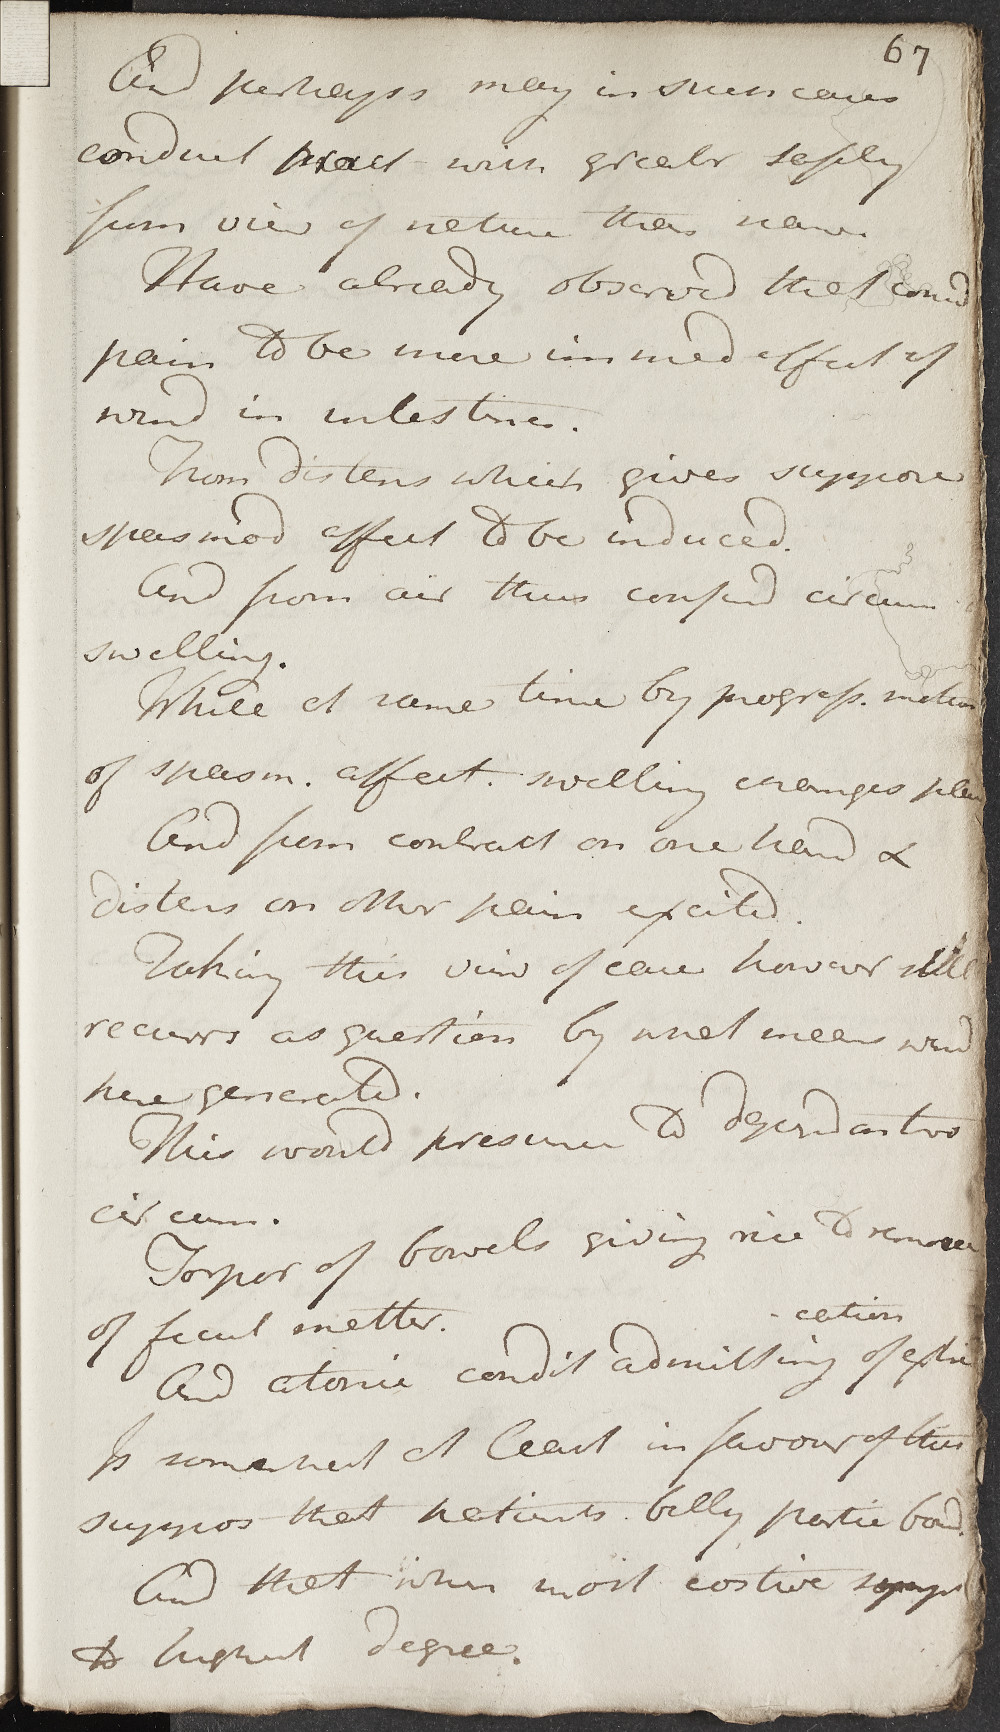 67
And perhaps may in such cases
conduct pract with greatr safety
from view of nature than name.
Have already observed that consid
pain to be mere immed effect of
wind in intestines.
From distens which gives suppose
spasmod affect to be induced.
And from air thus confind circum
swelling.
While at same time by progress. motion
of spasm. affect. swelling changes place
And from contract on one hand &
distens on other pain excited.
Taking this view of case however still
recurrs as question by what means wind
here generated.
This would presume to depend on two
circum.
Torpor of bowels giving rise to
of fecul matter.
-cation
And atonic condit admitting of extri
Is somewhat at least in favour of this
suppos that patients belly partic bound.
And that when most costive sympt
to highest degree.